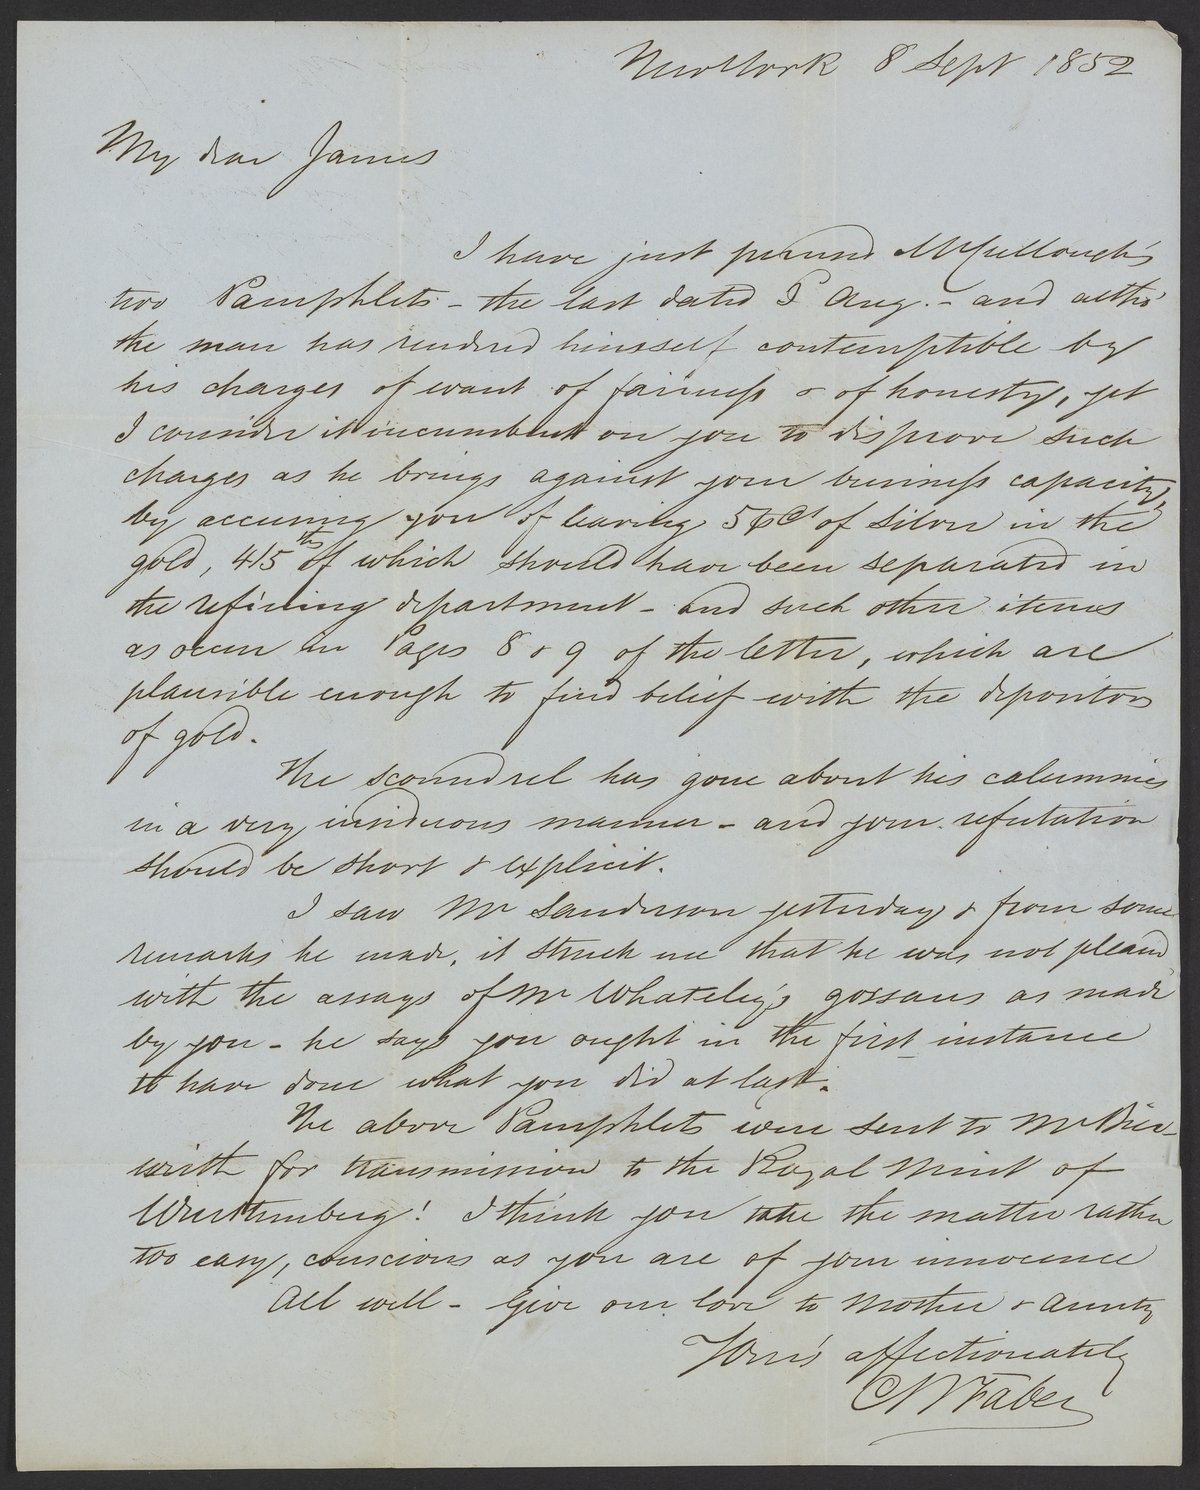 New York 8 Sept 1852
My dear James
I have just perused McCullough's
two Pamphlets - the last dated Aug. - and altho'
the man has rendered himself contemptible by
his charges of want of fairness & of honesty, yet
I consider it incumbent on you to disprove such
charges as he brings against your business capacity,
by accusing you of leaving 5 p Ct of silver in the
gold, 4/5ths of which should have been separated in
the refining department - and such other items
as occur in Pages 8 & 9 of the letter, which are
plausible enough to find belief with the depositors
of gold.
The scoundrel has gone about his calumnies
in a very insiduous manner - and your refutation
should be short & explicit.
I saw Mr Sanderson yesterday & from some
remarks he made, it struck me that he was not pleased
with the assays of Mr Whateley's gossans as made
by you - he says you ought in the first instance
to have done what you did at last.
The above Pamphlets were sent to Mr
with for transmission to the Royal Mint of
Wurtemberg! I think you take the matter rather
too easy, conscious as you are of your innocence
All well - Give our love to Mother & Aunty
Your's affectionately
Faber